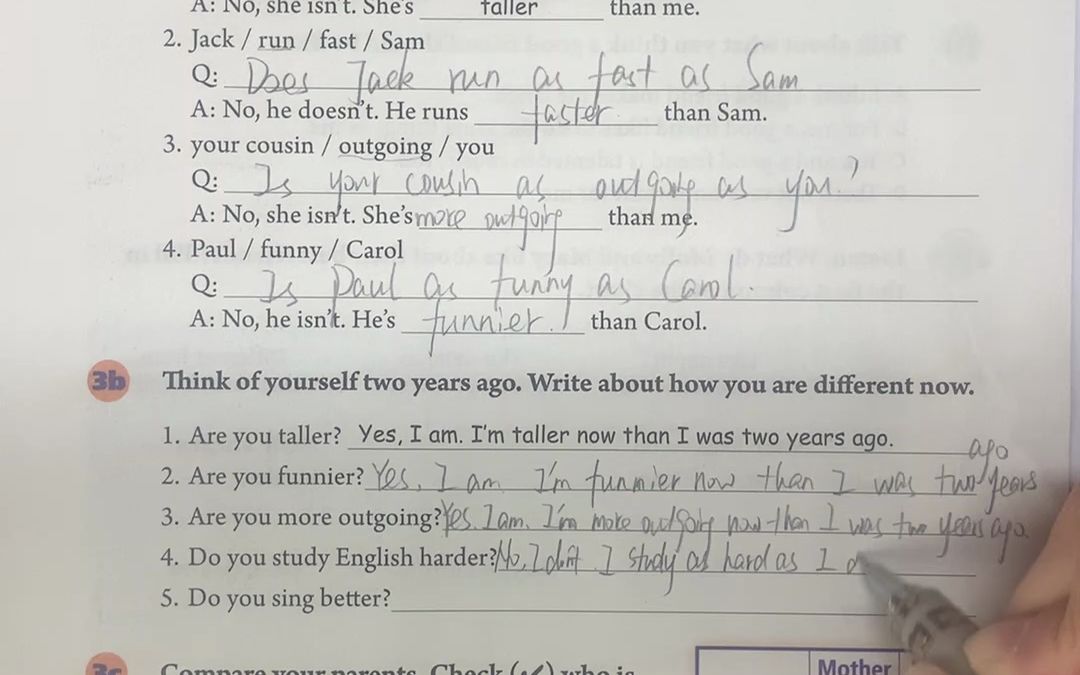 A: No, she isn't. She's taller than me.
2. Jack / run / fast / Sam
Q: Does Jack run as fast as Sam
A: No, he doesn't. He runs faster. than Sam.
3. your cousin / outgoing / you
Q: Is your cousin as outgoing as you?
A: No, she isn't. She's more outgoing than me.
4. Paul / funny / Carol
Q: Is Paul as funny as Carol.
A: No, he isn't. He's funnier. than Carol.
3b Think of yourself two years ago. Write about how you are different now.
1. Are you taller? Yes, I am. I'm taller now than I was two years ago.
2. Are you funnier? Yes, I am I'm funnier now than I was two years ago
3. Are you more outgoing? Yes. I am. I'm more outgoing now than I was two years ago.
4. Do you study English harder? No, I don't. I study as hard as I d
5. Do you sing better?
3c Compare your parents. Check (✓) who is
Mother